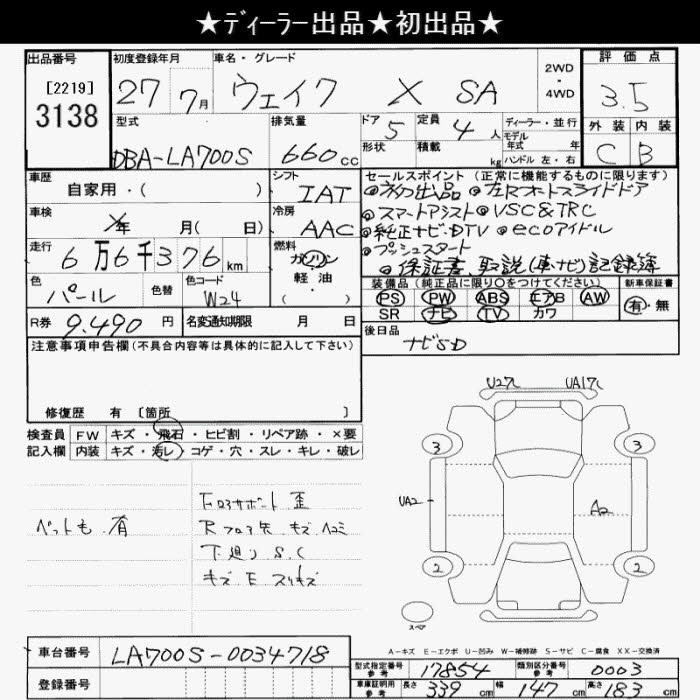 ★ディーラー出品★初出品★
出品番号
[2219]
3138
初度登録年月
27年 7月
車名・グレード
ウェイク X SA
2WD
・
4WD
評価点
3.5
外装 内装
C B
型式
DBA-LA700S
排気量
660cc
ドア 5
形状
定員 4人
積載 kg
ディーラー・並行
モデル年式 年
ハンドル 左・右
車歴
自家用・( )
シフト
IAT
車検
年 月( 日)
冷房
AAC
走行
6万6千376km
燃料
ガソリン
軽油
・( )
色
パール
色替
色コード
W24
R券 9.490円
名変通知期限 月 日
セールスポイント(正常に機能するものに限ります)
◎初出品 ◎左Rオートスライドドア
◎スマートアシスト◎VSC&TRC
◎純正ナビ・DTV ◎ecoアイドル
◎プッシュスタート
◎保証書、取説(車・ナビ)記録簿
装備品(純正品に限り〇をつけてください)
PS PW ABS エアB AW
SR ナビ TV カワ
新車保証書
有・無
後日品
ナビSD
注意事項申告欄(不具合内容等は具体的に記入して下さい)
修復歴 有 〔箇所 〕
検査員記入欄
FW キズ・飛石・ヒビ割・リペア跡・×要
内装 キズ・汚レ・コゲ・穴・スレ・キレ・破レ
ペットも 有
Fロアサポート 歪
Rフロア先 キズ ヘコミ
下廻り S.C
キズ E スリキズ
U27L UA17L
3 3
UA2 A2
2 2
スペア
A-キズ E-エクボ U-凹み W-補修跡 S-サビ C-腐食 XX-交換済
車台番号 LA700S-0034718
登録番号
型式指定番号 参考 17854 類別区分番号 参考 0003
車庫証明用 参考 長さ 339cm 幅 147cm 高さ 183cm